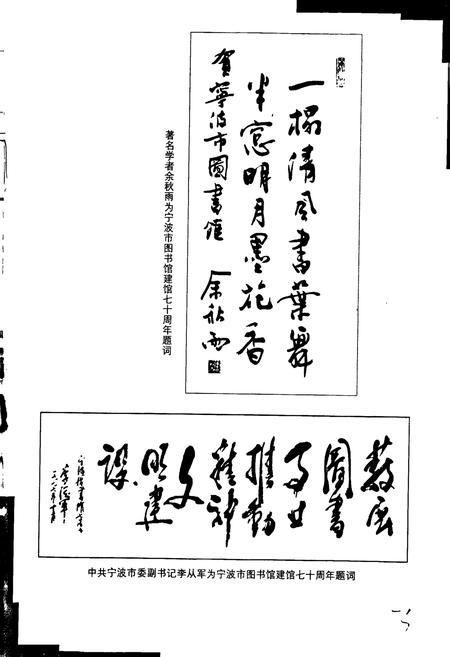 一榻清风书叶舞
半窗明月墨花香
贺宁波市图书馆
余秋雨
著名学者余秋雨为宁波市图书馆建馆七十周年题词
发展
图书
事业
推动
精神
文
明建
设
中共宁波市委副书记李从军为宁波市图书馆建馆七十周年题词